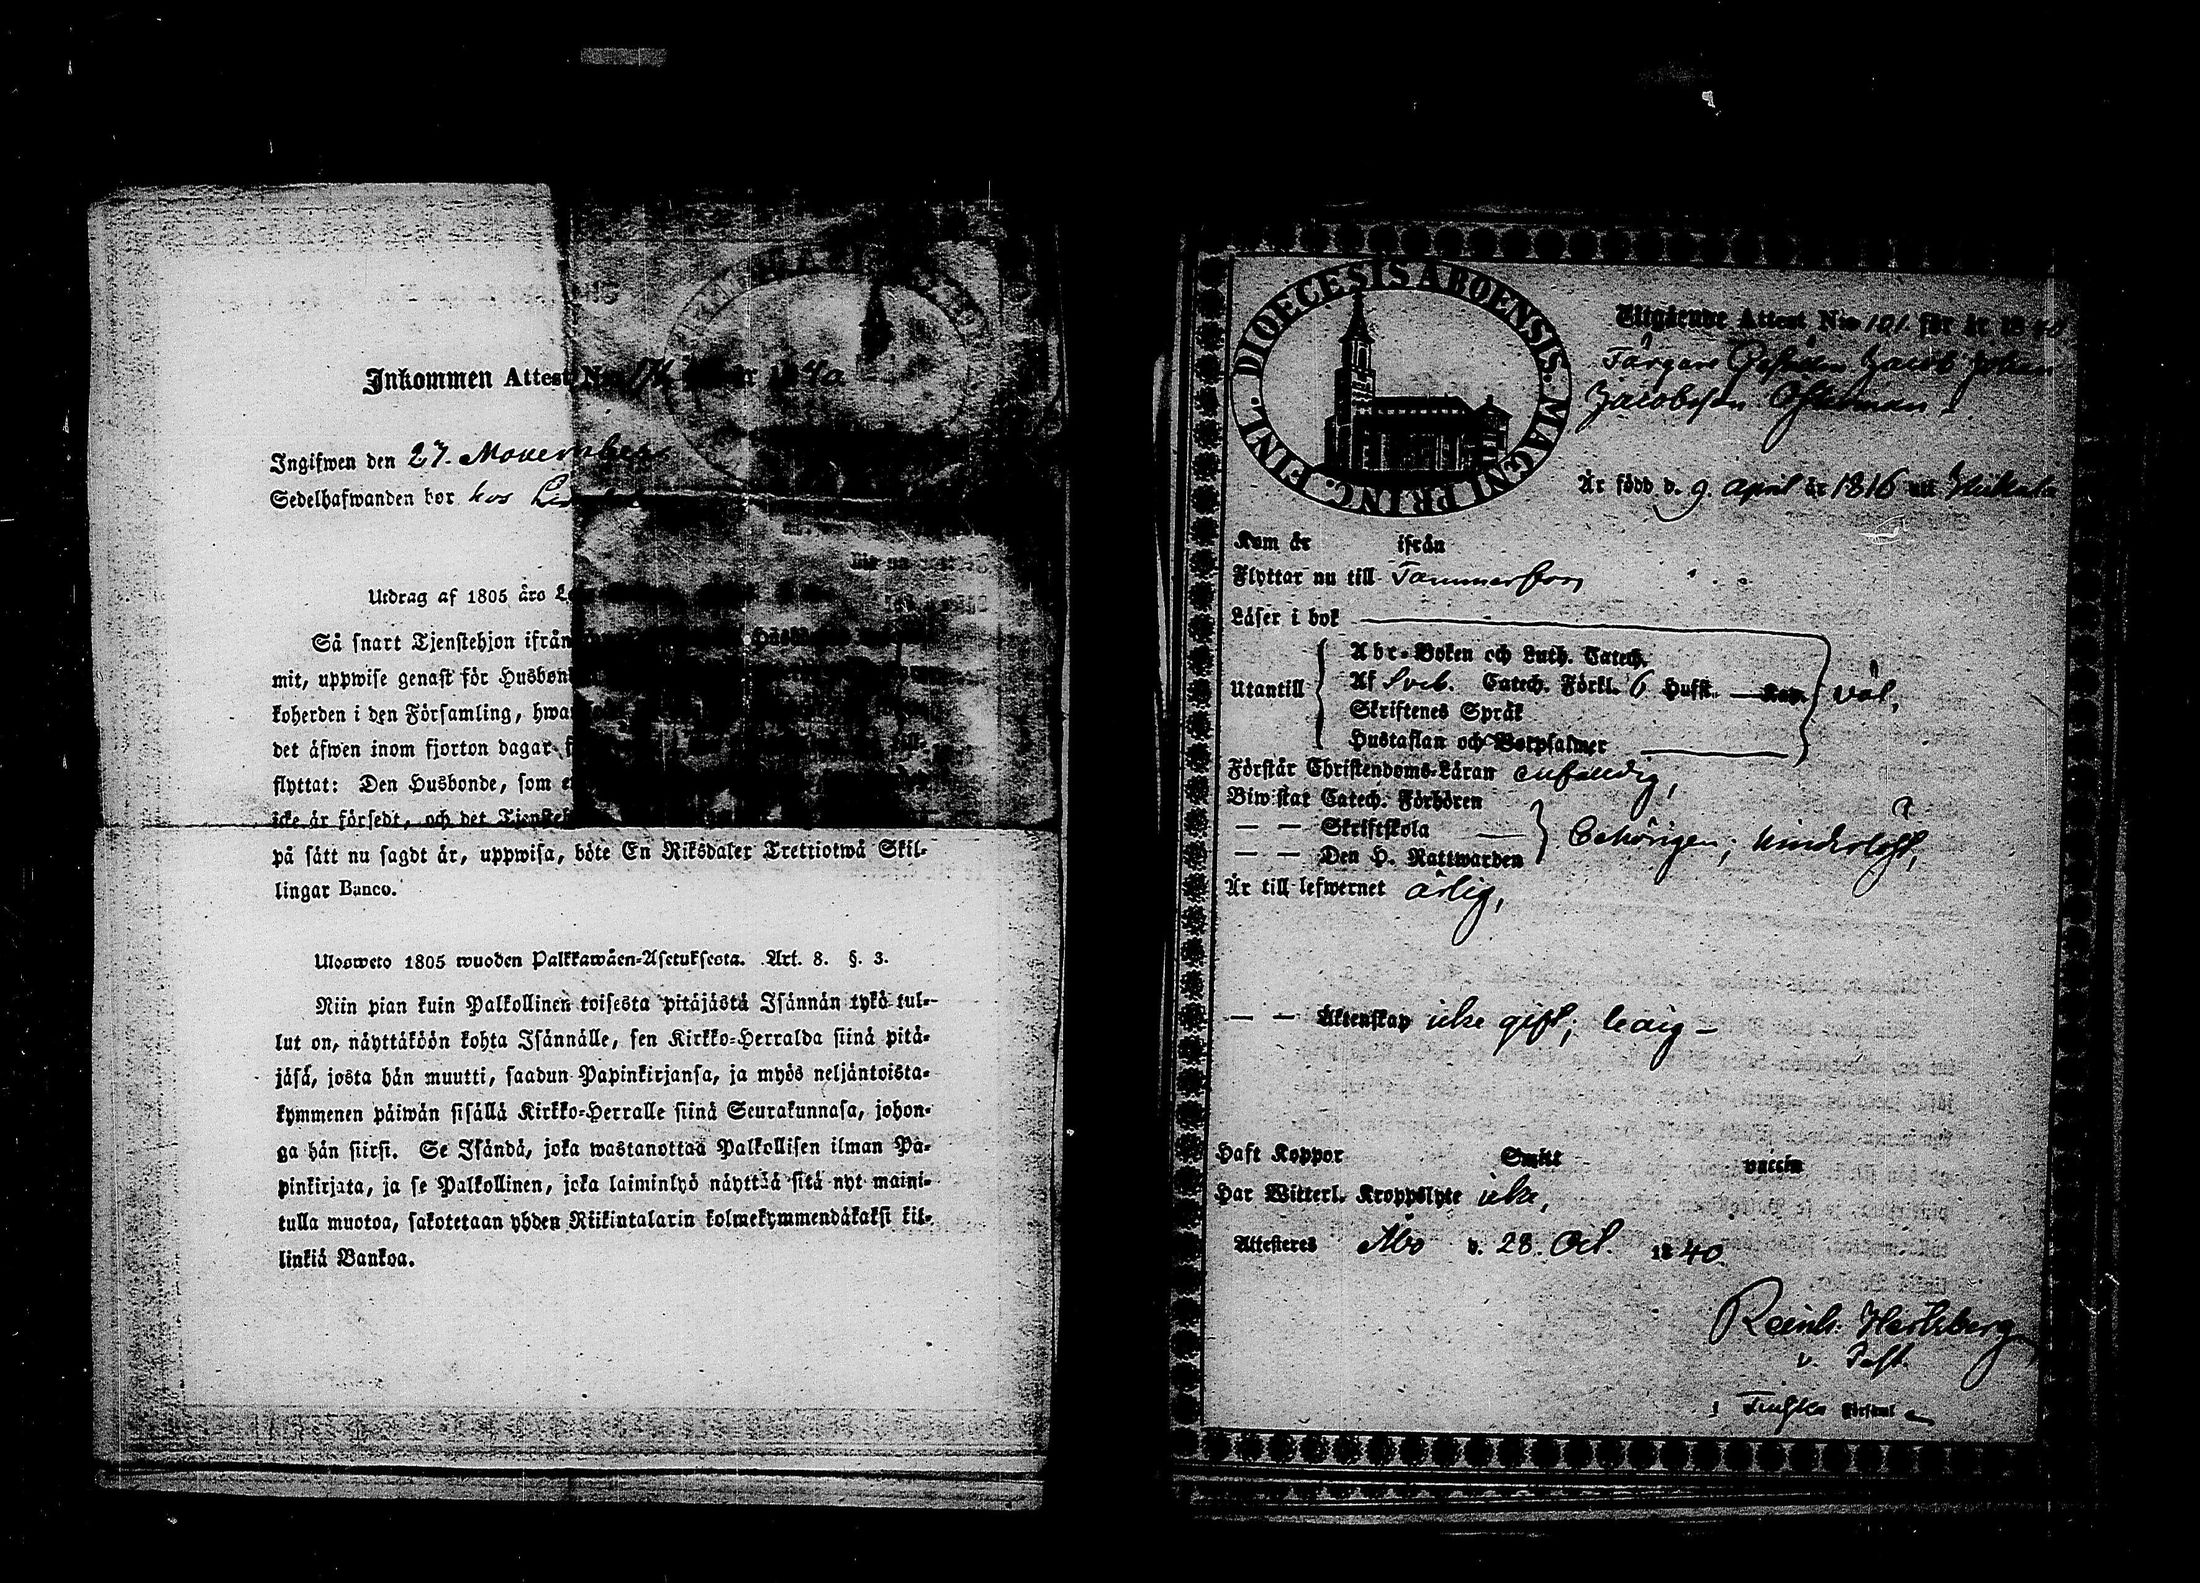 Inkommen Attest N:o för år 1840
Ingifwen den 27. November
Sedelhafwanden bor hos
Utdrag af 1805 års
Så snart Tjenstehjon ifrån
mit, uppwise genast för Husbond
koherden i den Församling, hwa
det äfwen inom fjorton dagar
flyttat: Den Husbonde, som e
icke är försedt, och det Tjensteh
på sätt nu sagdt är, uppwisa, böte En Riksdaler Trettiotwå Skil-
lingar Banco.
Ulosweto 1805 wuoden Palkkawäen-Asetuksesta. Art. 8. §. 3.
Niin pian kuin Palkollinen toisesta pitäjästä Isännän tykö tul-
lut on, näyttäköön kohta Isännälle, sen Kirkko-Herralda siinä pitä-
jäsä, josta hän muutti, saadun Papinkirjansa, ja myös neljäntoista-
kymmenen päiwän sisällä Kirkko-Herralle siinä Seurakunnasa, johon-
ga hän siirsi. Se Isändä, joka wastanottaa Palkollisen ilman Pa-
pinkirjata, ja se Palkollinen, joka laiminlyö näyttää sitä nyt maini-
tulla muotoa, sakotetaan yhden Riikintalarin kolmekymmendäkaksi kil-
linkiä Bankoa.
DIOECESIS ABOENSIS. MAGNI PRINC. FINL.
Utgående Attest N:o 101. för år 1840
Färgare Gesällen Jacob Johan
Jacobsson Österman
Är född d. 9. april år 1816 uti
Kom år ifrån
Flyttar nu till Tammerfors
Läser i bok
Abc-Boken och Luth. Catech.
Utantill Af Sveb. Catech. Förkl. 6 Hufst. — Kap. väl,
Skriftenes Språk
Hustaflan och Botpsalmer
Förstår Christendoms-Läran enfaldig,
Biwistat Catech. Förhören
— — Skriftskola — behörigen; hinderlöst,
— — Den H. Nattwarden
Är till lefwernet ärlig,
— — Äktenskap icke gift; ledig —
Haft Koppor Smitt vaccin
Har Witterl. Kroppslyte icke,
Attesteres Åbo d. 28. Oct. 1840.
Reinh. Hertzberg
v. Past.
i Finska Församl